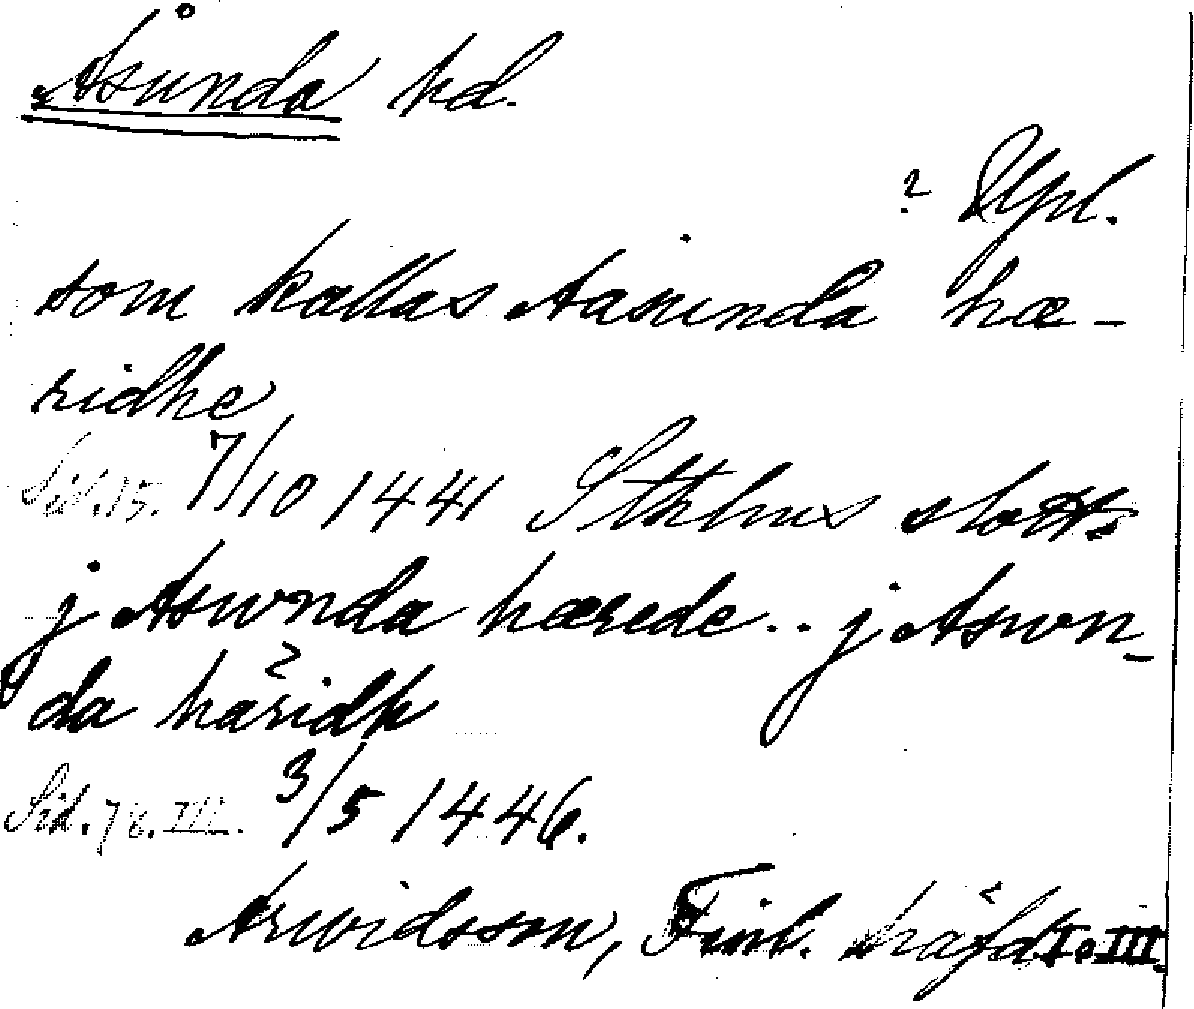 Åsunda hd.
? Upl.
som kallas Aasunda hæ-
ridhe
Sid. 15. 7/10 1441 Sthlms slott
j Aswnda hærede.. j Aswn-
da häridh
Sid. 78. III. 3/5 1446.
Arwidsson, Finl. häfd. I o III.